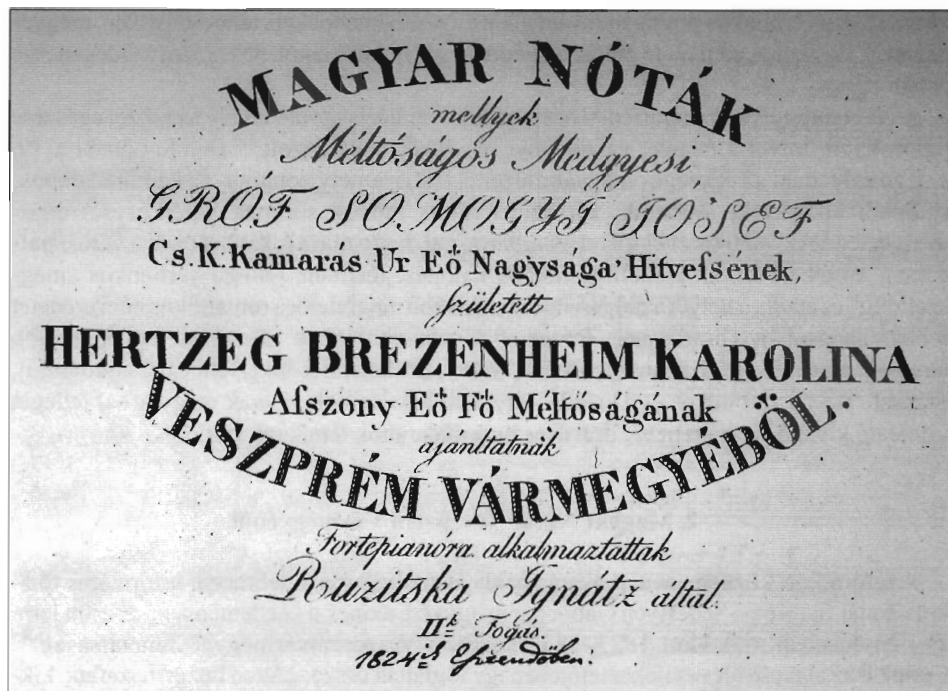 MAGYAR NÓTÁK
mellyek
Méltóságos Medgyesi
GRÓF SOMOGYI JÓSEF
Cs. K. Kamarás Ur Eő Nagysaga' Hitveſsének,
ſzületett
HERTZEG BREZENHEIM KAROLINA
Aſszony Eő Fő Méltóságának
ajánltatnák
VESZPRÉM VÁRMEGYÉBŐL.
Fortepianóra alkalmaztattak
Ruzitska Ignátz által.
IIk Fogás.
1824ik Eſztendőben.